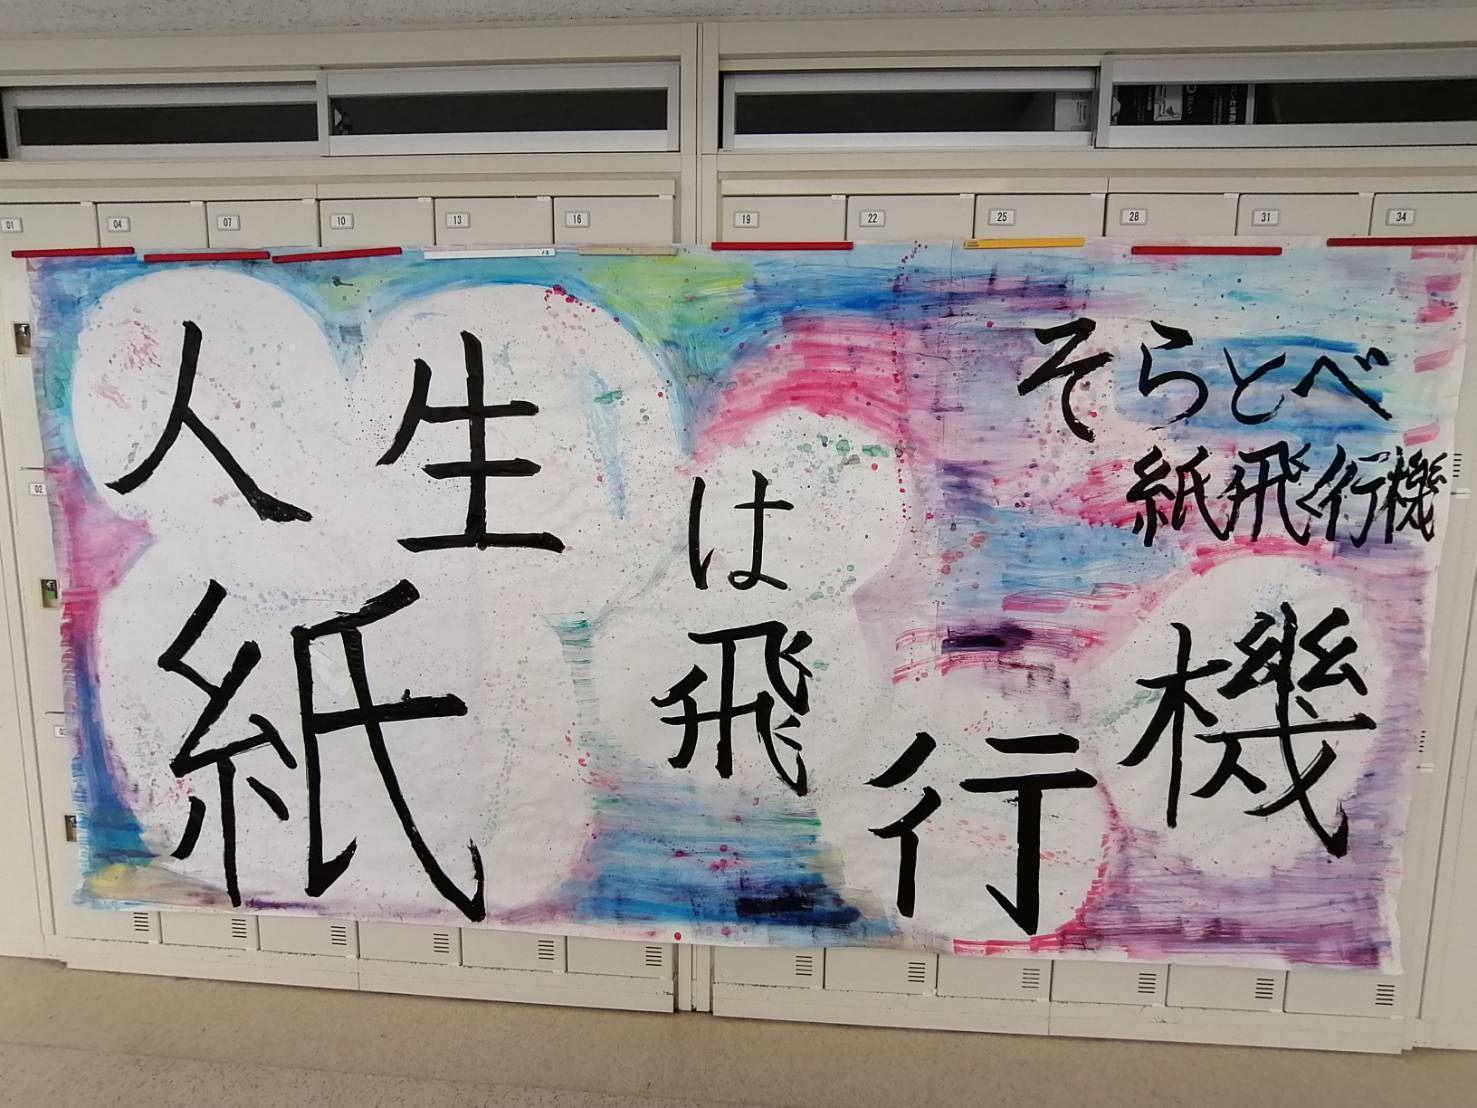 01
04
07
10
13
16
19
22
25
28
31
34
02
人生
は
紙飛行機
そらとべ
紙飛行機